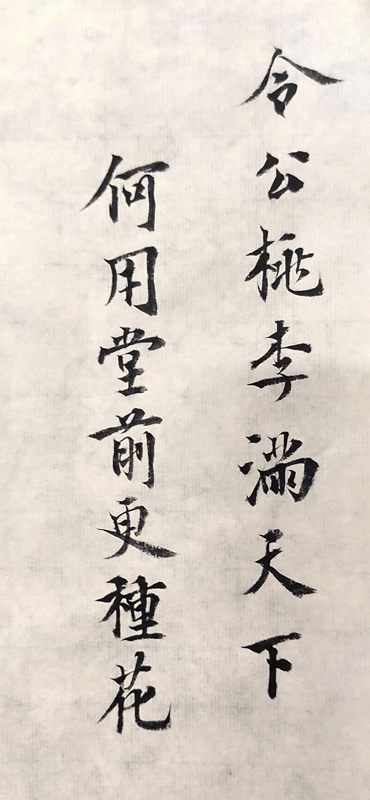 令公桃李滿天下
何用堂前更種花